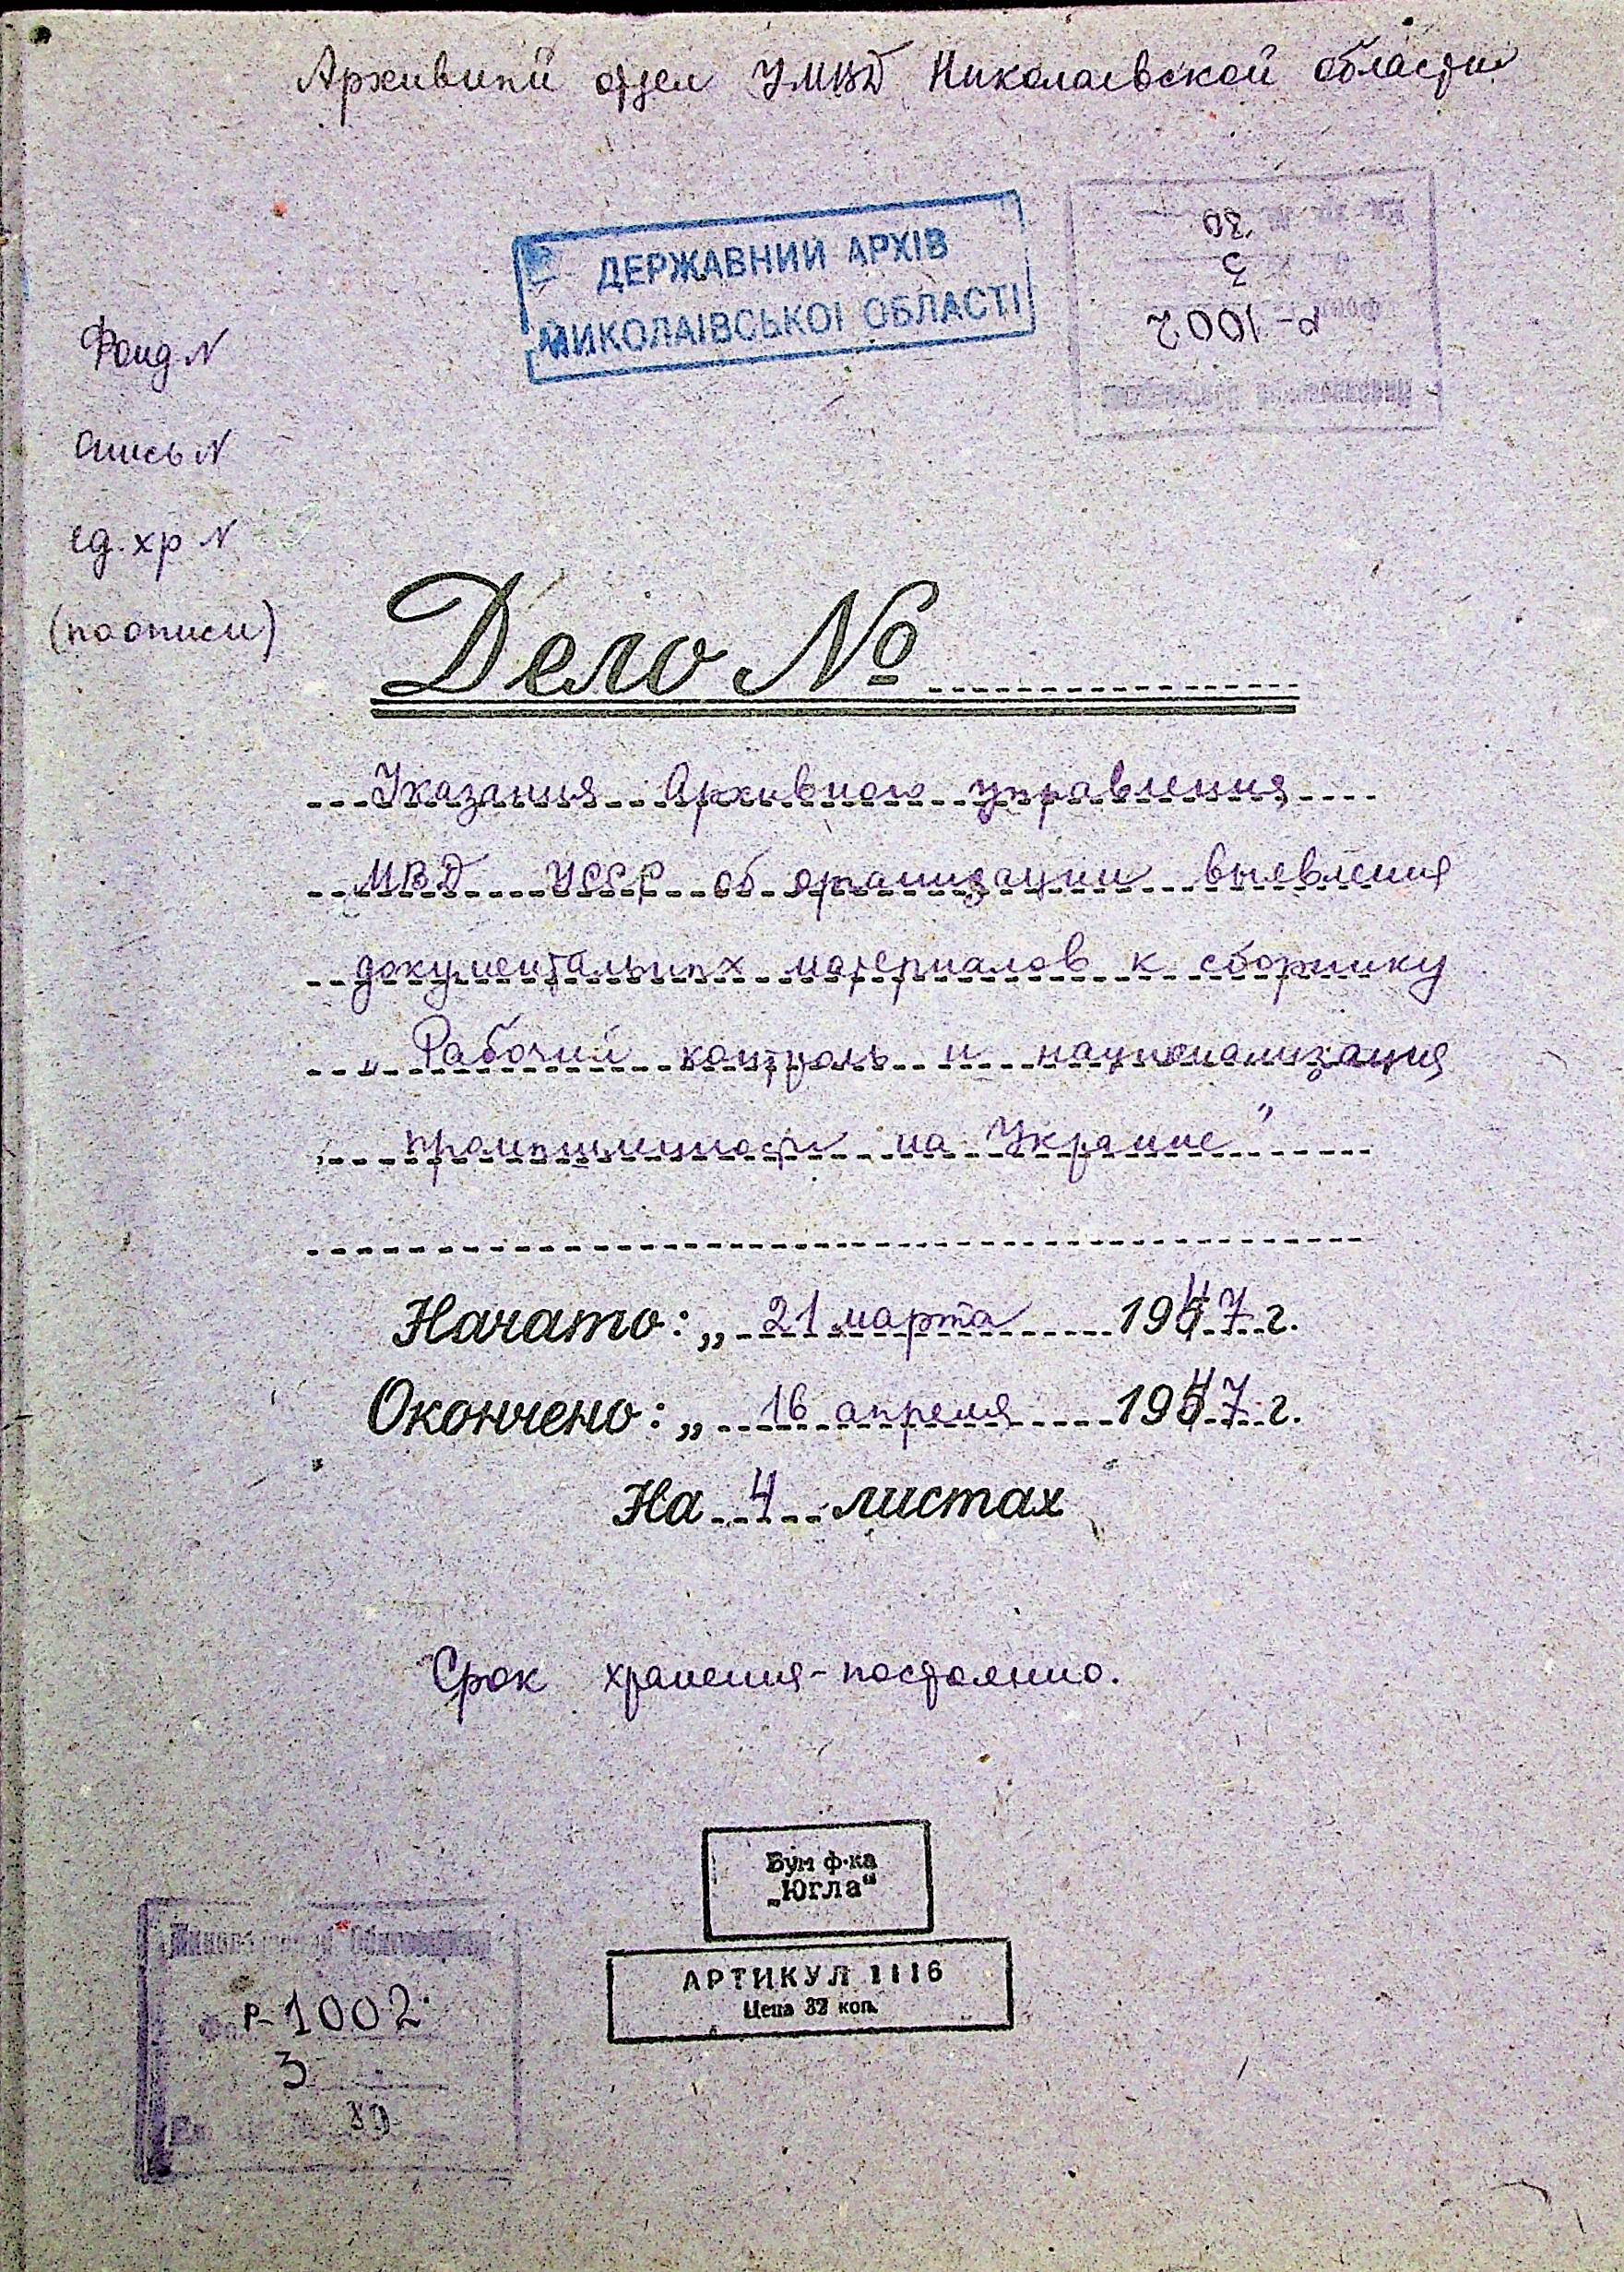 Архивный отдел УМВД Николаевской области
ДЕРЖАВНИЙ АРХІВ
МИКОЛАЇВСЬКОЇ ОБЛАСТІ
30
3
Фонд Р-1002
Фонд N
Опись N
ед. хр N
(по описи)
Дело №
Указания Архивного управления
МВД УССР об организации выявления
документальных материалов к сборнику
„Рабочий контроль и национализация
промышленности на Украине"
Начато: „ 21 марта 1947 г.
Окончено: „ 16 апреля 1947 г.
На 4 листах
Срок хранения - постоянно.
Бум ф-ка
„Югла"
АРТИКУЛ 1116
Цена 32 коп.
Р-1002
3